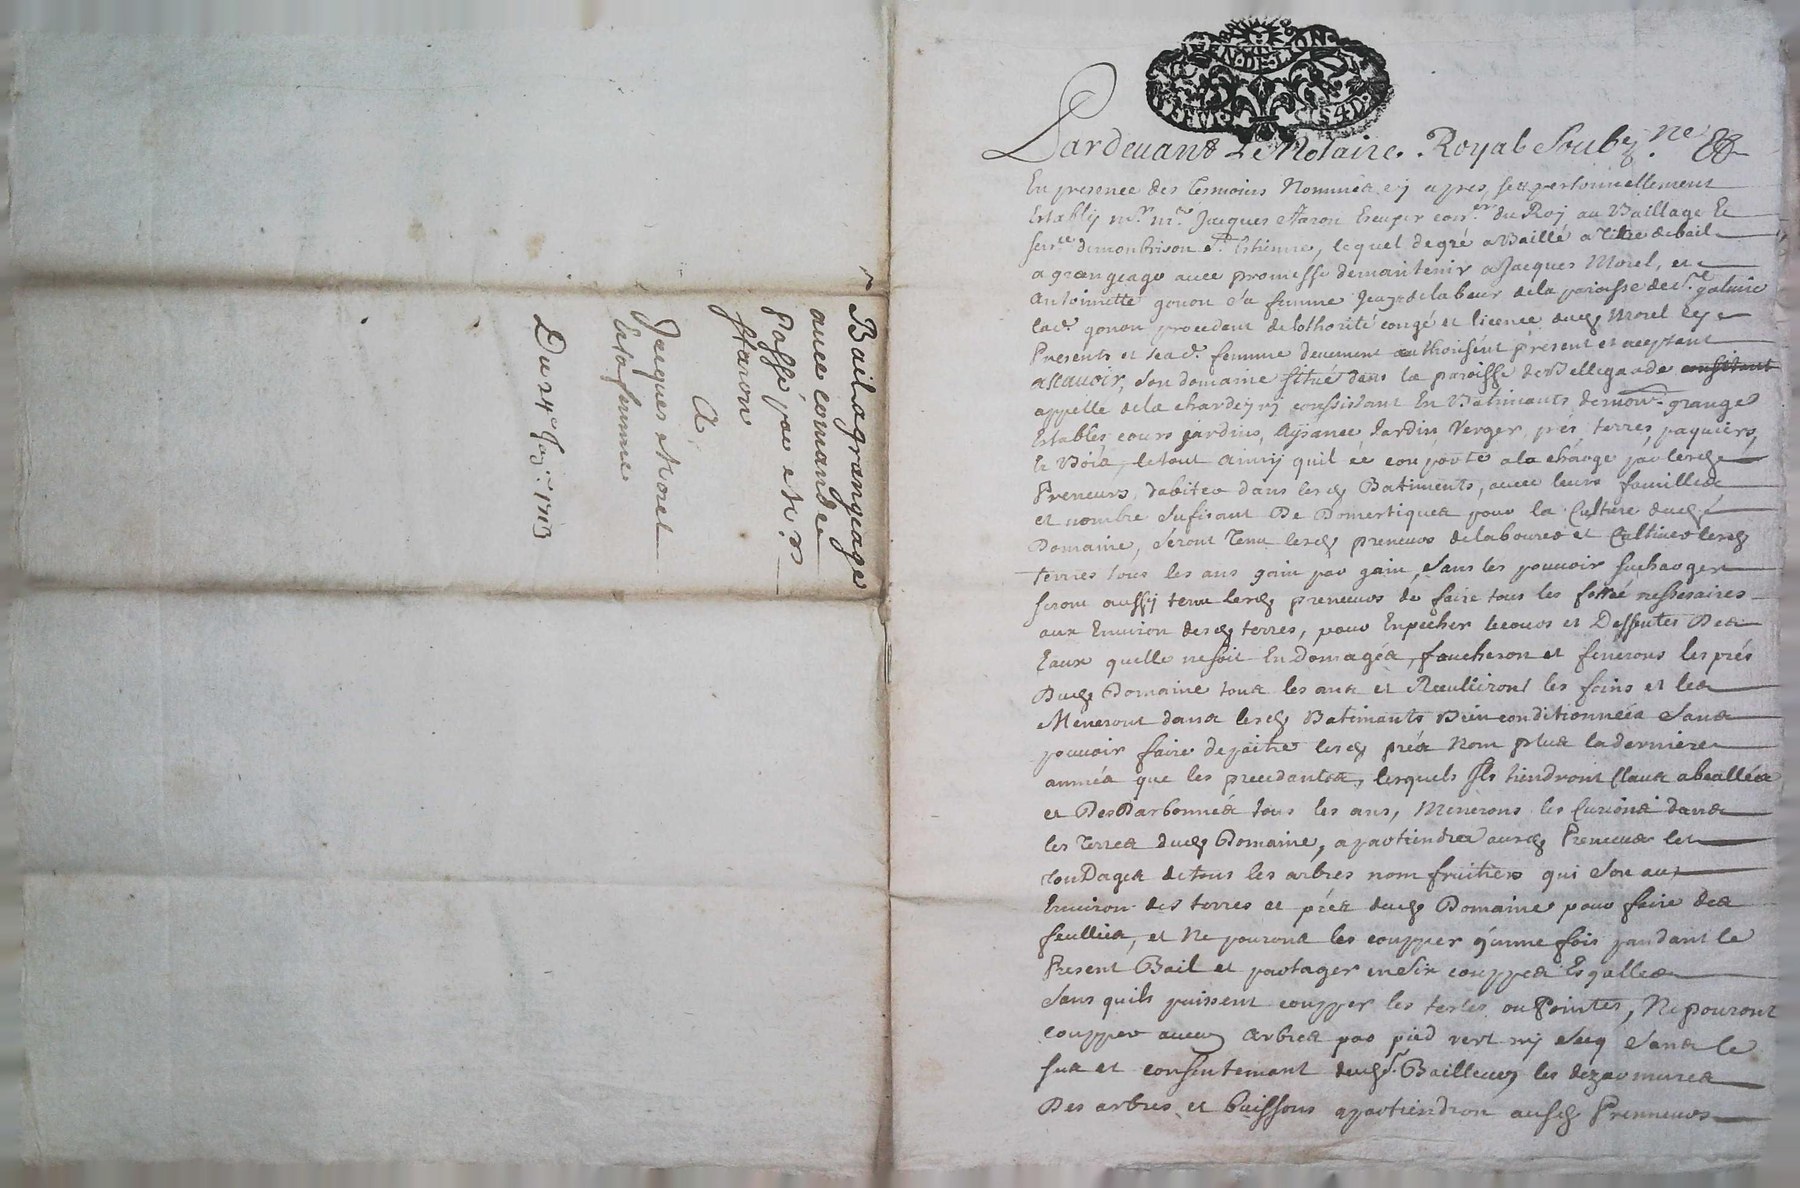 Bail a grangeage
avec comande
passé par Mr.
Staron
A
Jacques Morel
et sa femme
Du 24e Jan. 1713
Pardevant Le Notaire Royal Soubz.ne
En presence des Tesmoins Nommés cy apres, sest personnellement
Establÿ Jacques Staron Escuyer con.er du Roy au Baillage Et
demonbrison St. Estienne, lequel de gré a Baillé a Titre de bail
a grangeage avec promesse demaintenir a Jacques Morel, et
Antoinette gonon sa femme delabeur dela paroisse de St. galmier
lad. gonon procedant delothorité congé et licence dud. Morel Icy
Presents et sad. femme deuement authorisént present et aceptant
ascavoir, son domaine situé dans la paroisse de Bellegarde consistant
appellé dela chardeyry consistant En Batimants granges
Estables cours jardins, Aysance Jardin Verger prés terres, paquiers,
Et Bois, letout Ainsy quil se comporte ala charge par lesd.
Preneurs, dabiter dans lesd. Batiments, avec leurs familles
et nombre sufisant De Domestiques pour la Culture dud.
Domaine, seront Tenu lesd. preneurs delabourer et Cultiver lesd.
terres tous les ans gain par gain, sans les pouvoir surcharger
seront aussy tenu lesd. preneurs de faire tous les fossé nessesaires
aux Environ desd. terres, pour Enpecher lecours et Dessentes Des
Eaux quelle nesoit Endomagés, faucheron et fenerons les prés
Dud. Domaine tous les ans et Receuliront les foins et les
Meneront dans lesd. Batimants Bien conditionnéés sans
pouvoir faire depaitre lesd. prés Nom plus laderniere
année que les precedantes, lesquels Ils tiendront Claus abealléés
et DesDarbonnés tous les ans, Menerons les Curions dans
les Terres dud. Domaine, apartiendra ausd. Preneurs les
tonDages detous les arbres nom fruitiers qui son aux
Environ des terres et prés dud. Domaine pour faire des
feullies, et Ne pouront les coupper qu'une fois pandant le
Present Bail et partager ensix couppes Esgalles
Sans quils puissent coupper les testes ou Pointes, Ne pouront
coupper aucun Arbres par pied vert ny secq sans le
sus et consentemant dud. Sr. Bailleur, les dezarmures
Des arbres et buissons apartiendron ausd. Prenneurs